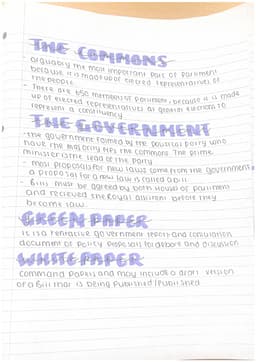 THE COMMONS
arguably the most important part of Parliment
because it is made up of elected representatives of
the people.
- There are 650 members of Parliment, because it is made
up of elected representatives at general elections to
represent a constituency
THE GOVERNMENT
- the government formed by the political party who
have the majority MPs the commons. The prime
minister is the lead of the party
- most proposals for new laws come from the government
a proposal for a new law is called a bill
- Bills must be agreed by both house of parliment
and recieved the Royal assent before they
become law.
GREEN PAPER
it is a tentative government report and consulation
document of policy proposals for debate and discussion
WHITE PAPER
command papers and may include a draft version
of a Bill that is being published/published